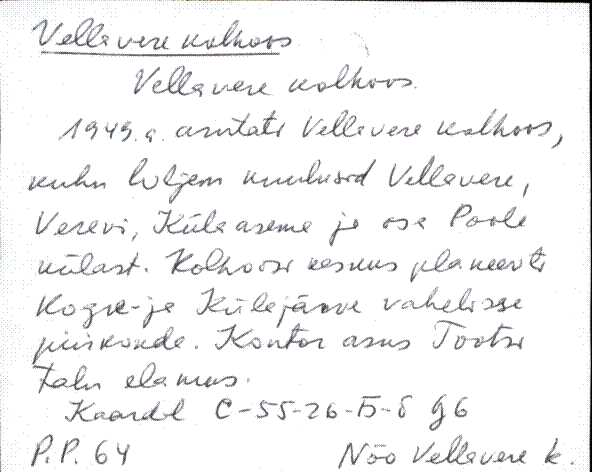 Vellavere kolhoos
Vellavere kolhoos.
1949.a. asutati Vellavere kolhoos,
kuhu hiljem kuulusid Vellavere,
Verevi, Külaaseme ja osa Poole
külast. Kolhoosi keskus planeeriti
Kogre- ja Külajärve vahelisse
piirkonda. Kontor asus Tootsi
talu elamus.
Kaardil C-55-26-Б-б g6
P.P. 64 Nõo Vellavere k.